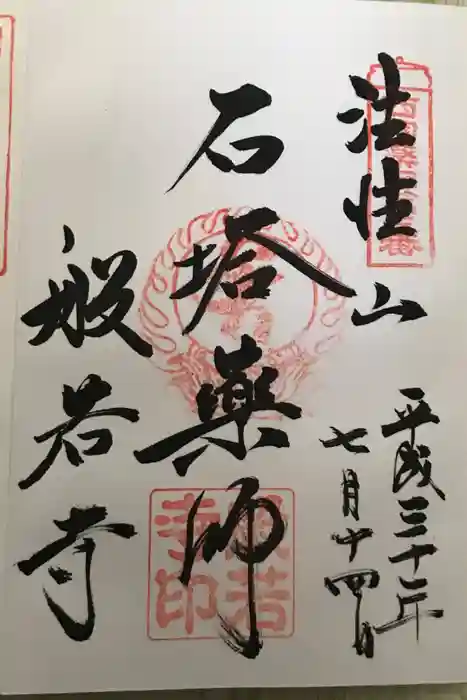 法性山
平成三十年
七月十四日
石塔薬師
般若寺
般若
寺印